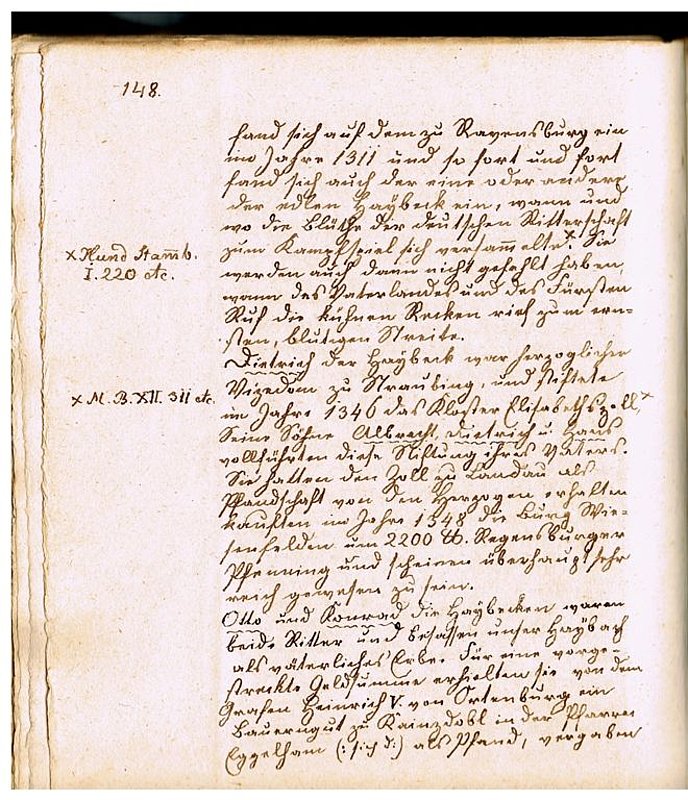 148.
fand sich auf dem zu Ravensburg ein
im Jahre 1311 und so fort und fort
fand sich auch der eine oder andere
der edlen Haybeck ein, wann und
wo die Blüthe der deutschen Ritterschaft
zum Kampfspiel sich versam̅elte.× Sie
werden auch dann nicht gefehlt haben,
wann des Vaterlandes und des Fürsten
Ruf die kühnen Recken rief zum ern-
sten, blutigen Streite.
× Hund Stam̅b.
I. 220 etc.
Dietrich der Haybeck war herzoglicher
Vizedom zu Straubing, und stiftete
im Jahre 1346 das Kloster Elisabethszell,×
Seine Söhne Albrecht, Dietrich u. Hans
vollführten diese Stiftung ihres Vaters.
Sie hatten den Zoll zu Landau als
Pfandschaft von den Herzogen erhalten
kauften im Jahre 1348 die Burg Wie-
senfelden um 2200 ℔. Regensburger
Pfenning und scheinen überhaupt sehr
reich gewesen zu sein.
× M. B. XII. 311 etc.
Otto und Konrad die Haybecken waren
beide Ritter und besassen unser Haybach
als väterliches Erbe. Für eine vorge-
streckte Geldsumme erhielten sie von dem
Grafen Heinrich V. von Ortenburg ein
Bauerngut zu Kainzdobl in der Pfarrei
Eggelham (: sich d:) als Pfand, vergaben